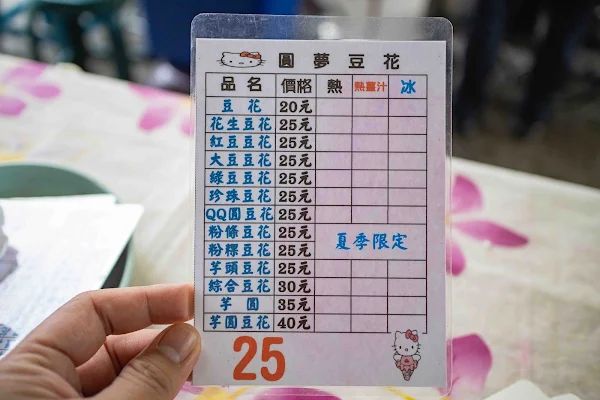 圓夢豆花
品名 價格 熱 熱薑汁 冰
豆花 20元
花生豆花 25元
紅豆豆花 25元
大豆豆花 25元
綠豆豆花 25元
珍珠豆花 25元
QQ圓豆花 25元
粉條豆花 25元 夏季限定
粉粿豆花 25元
芋頭豆花 25元
綜合豆花 30元
芋圓 35元
芋圓豆花 40元
25